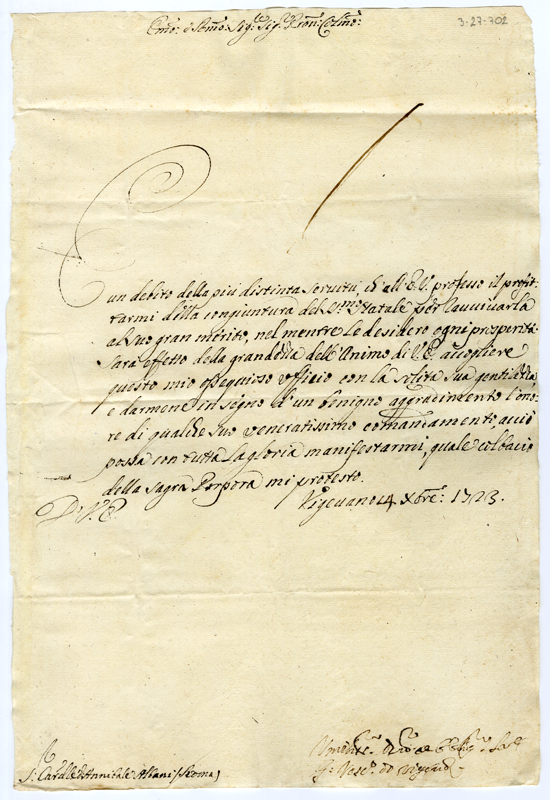 3-27-702
Emo: e Rmo: Sigre Sigr. Pron: Colmo:
È un debito della più distinta servitù, ch'all'E.V. professo il profit:
tarmi della congiuntura del Smo Natale per ravvivarla
al suo gran merito, nel mentre le desidero ogni prosperità
sarà effetto della grandezza dell'Animo di V.E. accogliere
questo mio ossequioso ufficio con la solita sua gentilezza
e darmene in segno d'un benigno aggradimento l'ono:
re di qualche suo veneratissimo comandamento, acciò
possa con tutta la gloria manifestarmi, quale col bacio
della sagra Porpora mi protesto.
Di V.E. Vigevano 14 Xbre: 1723.
Servre
Vescvo di Vigevo
S: Cardle Annibale Albani (Roma)